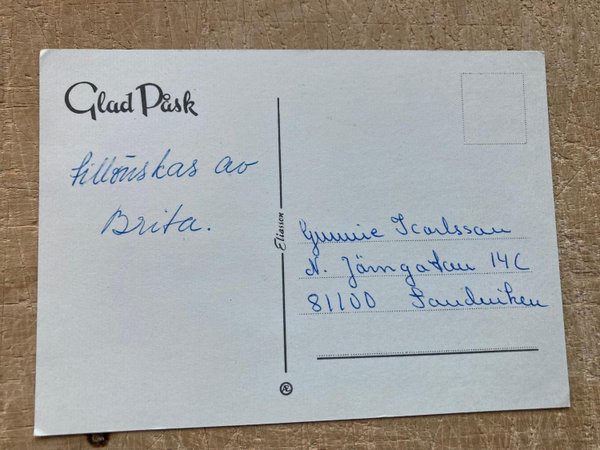 Glad Påsk
tillönskas av
Brita.
Eliasson
Gunnie Karlsson
N. Järngatan 14C
81100 Sandviken
Æ